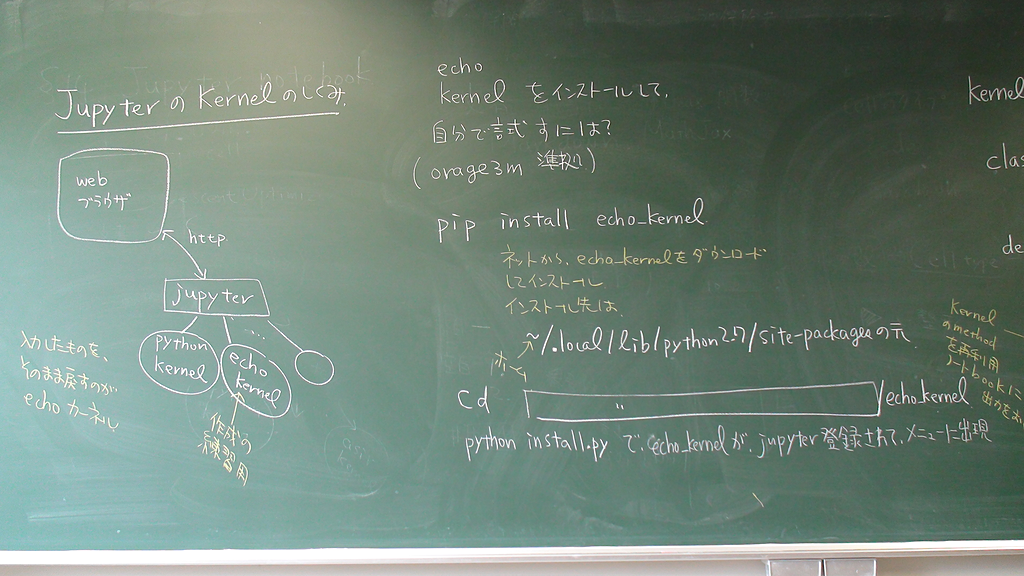 JupyterのKernelのしくみ
web
ブラウザ
http
jupyter
python
kernel
echo
kernel
...
入力したものを、
そのまま戻すのが
echo カーネル
作成の
練習用
echo
kernel をインストールして、
自分で試すには?
(orage3m 準拠)
pip install echo_kernel
ネットから、echo_kernelをダウンロード
してインストール
インストール先は、
~/.local/lib/python2.7/site-packagesの元
cd 〃 /echo_kernel
python install.py で、echo_kernelが、jupyter登録されて、メニューに出現
kernel
clas
de
Kernel
のmethod
を再利用